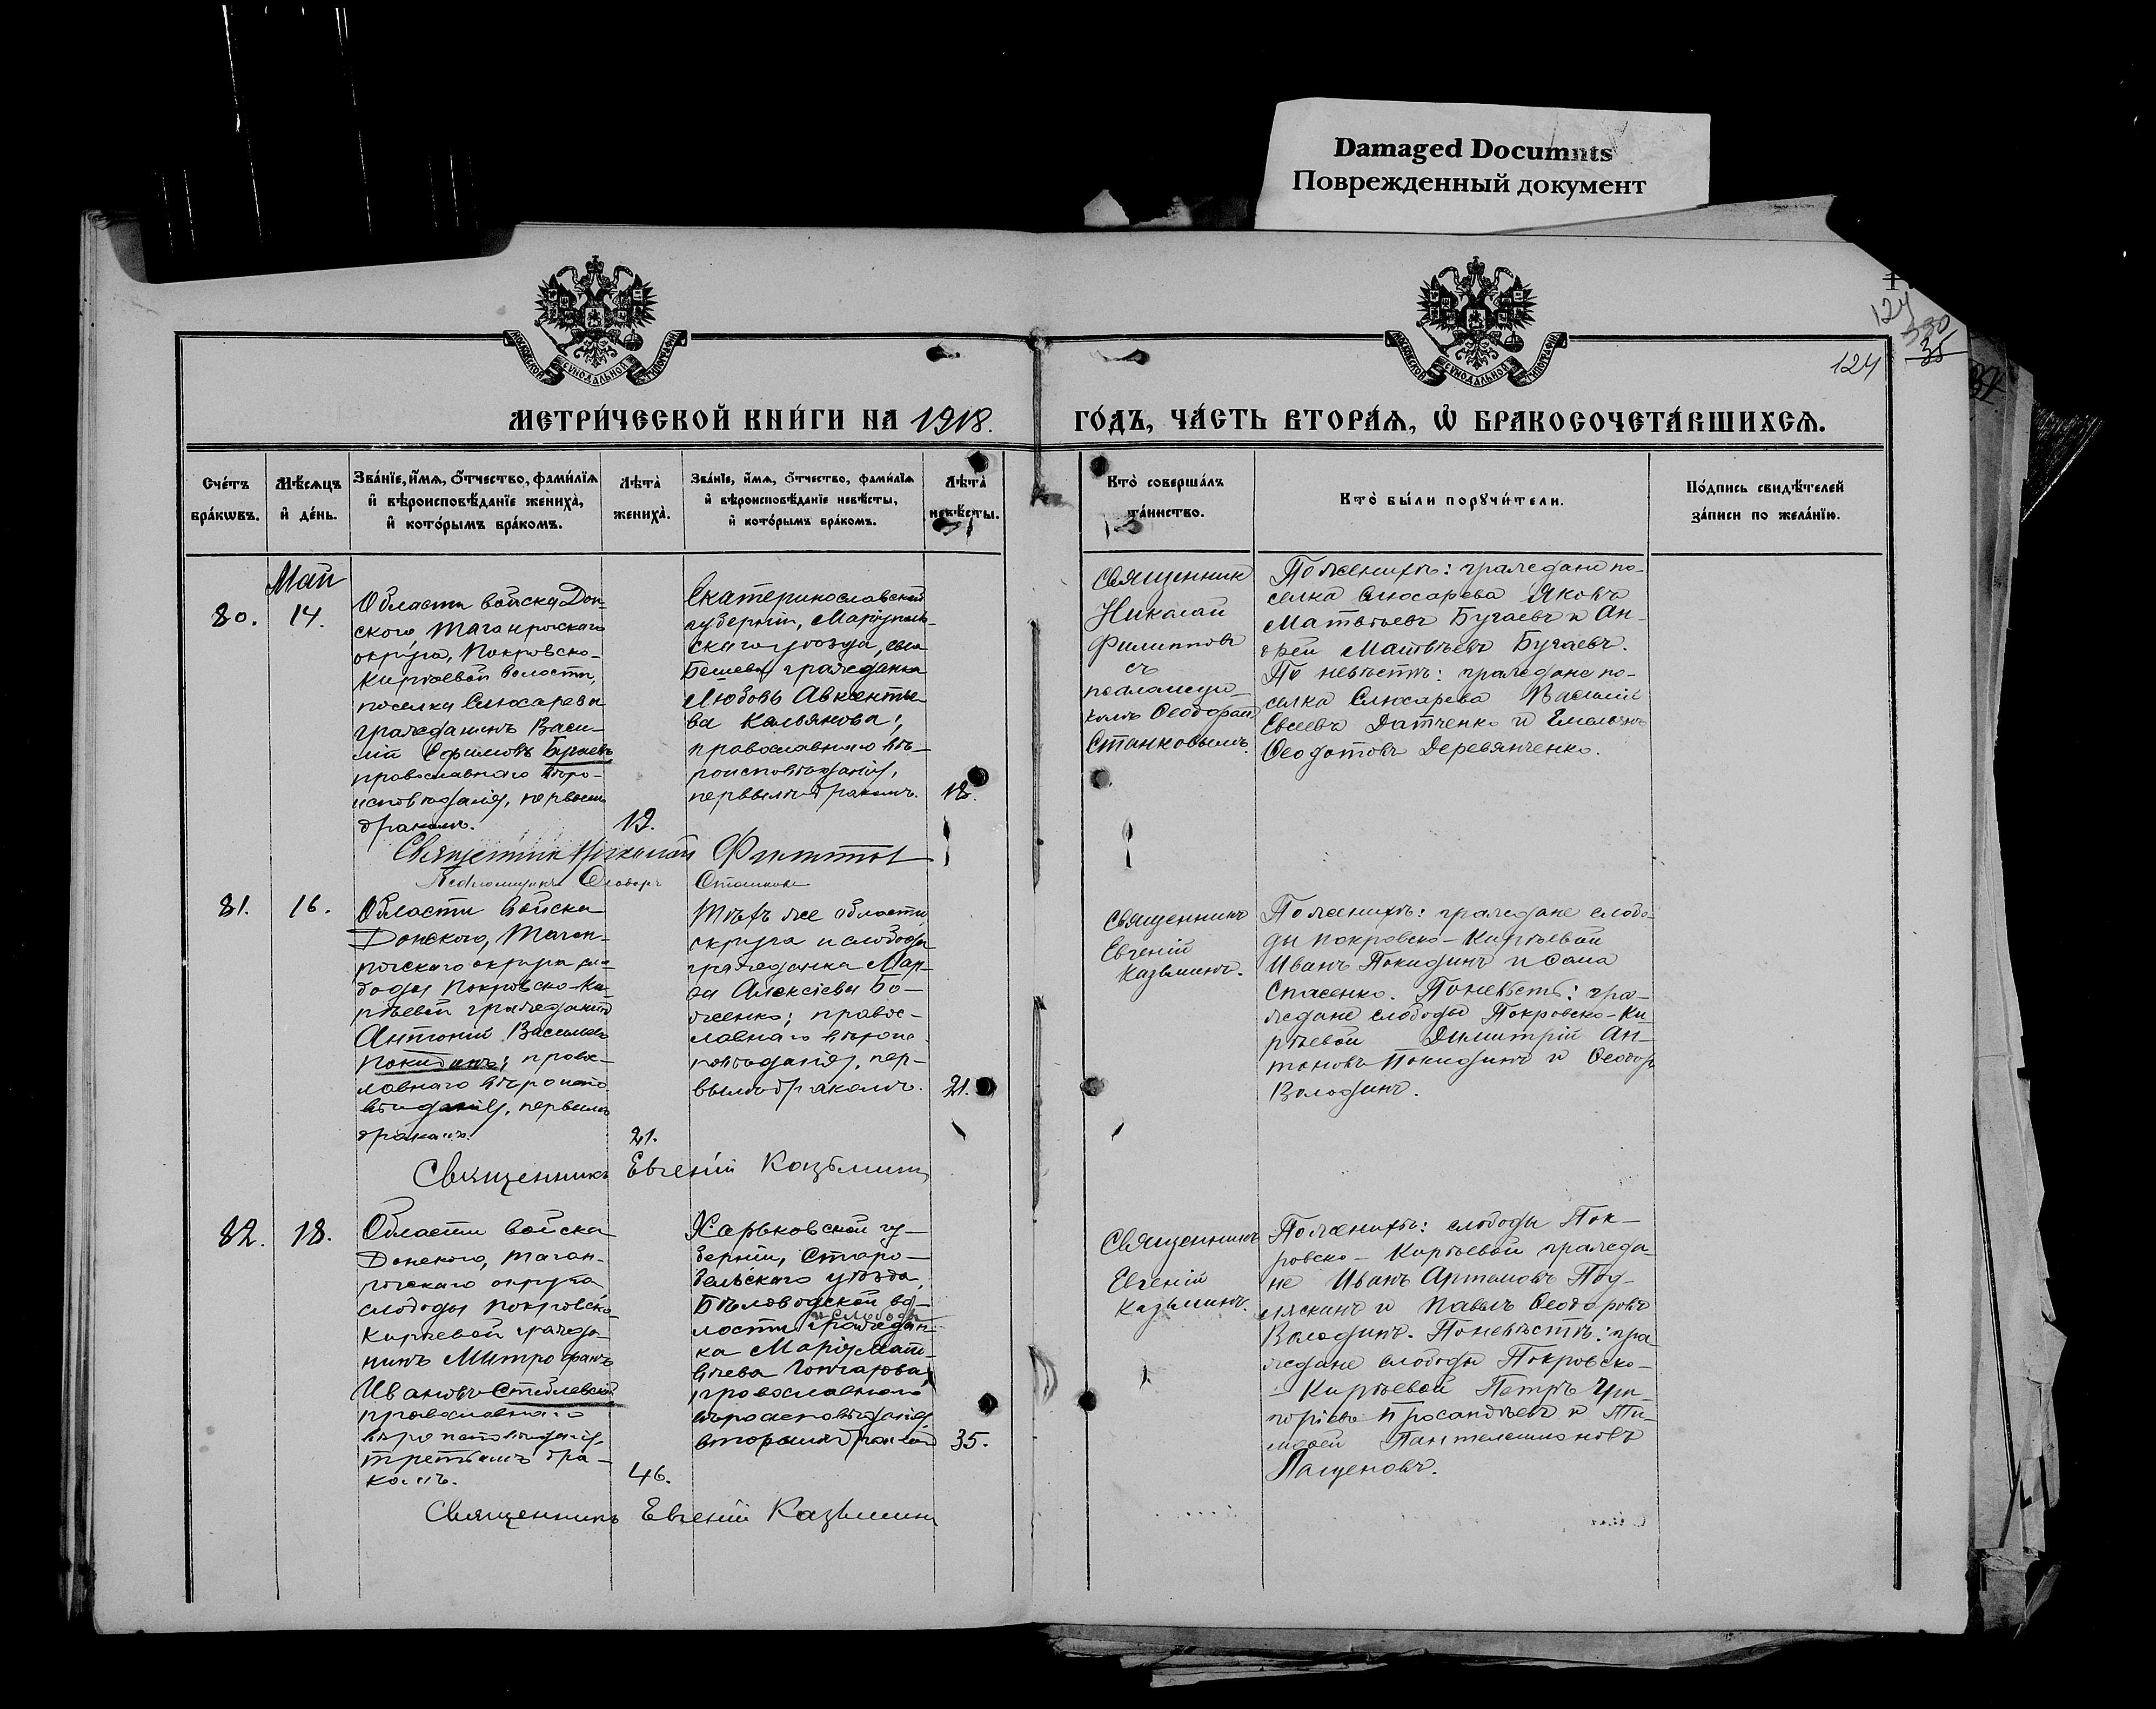 Damaged Documnts
Поврежденный документ
МОСКОВСКОЙ СѴНОДАЛЬНОЙ ТИПОГРАФІИ
МОСКОВСКОЙ СѴНОДАЛЬНОЙ ТИПОГРАФІИ
124
330
35
124
МЕТРИ́ЧЕСКОЙ КНИ́ГИ НА 1918.
ГО́ДЪ, ЧА́СТЬ ВТОРА́Я, Ѿ БРАКОСОЧЕТА́ВШИХСЯ.
Сче́тъ
бра́кѡвъ.
Мѣ́сяцъ
и҆ де́нь.
Зва́нїе, и҆́мя, ѻ҆́тчество, фами́лїя
и҆ вѣроисповѣ́данїе жениха̀,
и҆ кото́рымъ бра́комъ.
Лѣ́та̀
жениха̀.
Зва́нїе, и҆́мя, ѻ҆́тчество, фами́лїя
и҆ вѣроисповѣ́данїе невѣ́сты,
и҆ кото́рымъ бра́комъ.
Лѣ́та̀
невѣ́сты.
Кто̀ соверша́лъ
та́инство.
Кто̀ бы́ли порꙋчи́тели.
По́дпись свидѣ́телей
за́писи по жела́нїю.
Май
80.
14.
Области войска Дон-
ского, Таганрогскаго
округа, Покровско-
Кирѣевой волости,
поселка Слюсарева
гражданинъ Васи-
лій Ефимовъ Бугаевъ,
православнаго вѣро-
исповѣданія, первымъ
бракомъ.
19.
Екатеринославской
губерніи, Маріуполь-
скаго уѣзда, села
Бешева гражданка
Любовь Авксентье-
ва Кальянова;
православнаго вѣ-
роисповѣданія,
первымъ бракомъ.
18.
Священник
Николай
Филипповъ
съ
псаломщи-
комъ Ѳеодоромъ
Станковымъ.
По женихѣ: граждане по-
селка Слюсарева Яковъ
Матвѣевъ Бугаевъ и Ан-
дрей Матвѣевъ Бугаевъ.
По невѣстѣ: граждане по-
селка Слюсарева Василій
Евсеевъ Датченко и Емельянъ
Ѳеодотовъ Деревянченко.
Священник Николай Филиппов
Псаломщикъ Ѳеодоръ Станков
81.
16.
Области войска
Донского, Таган-
рогскаго округа сло-
боды Покровско-Ки-
рѣевой гражданинъ
Антоній Васильевъ
Покидинъ; правос-
лавнаго вѣроиспо-
вѣданія, первымъ
бракомъ.
21.
Тѣхъ же области,
округа и слободы
гражданка Мар-
ѳа Алексіева Бо-
женко; правос-
лавнаго вѣроис-
повѣданія, пер-
вымъ бракомъ.
21.
Священникъ
Евгеній
Казьминъ.
По женихѣ: граждане слобо-
ды Покровско-Кирѣевой
Иванъ Покидинъ и Ѳома
Спасенко. По невѣстѣ: гра-
ждане слободы Покровско-Ки-
рѣевой Димитрій Ан-
тоновъ Покидинъ и Ѳеодоръ
Володинъ.
Священникъ Евгеній Казьмин
82.
18.
Области войска
Донского, Таган-
рогскаго округа
слободы Покровско-
Кирѣевой гражда-
нинъ Митрофанъ
Ивановъ Стеблевскій
православнаго
вѣроисповѣданія,
третьимъ бра-
комъ.
46.
Харьковской гу-
берніи, Старо-
бѣльскаго уѣзда,
Бѣловодской во-
лости и слободы граждан-
ка Марія Мат-
вѣева Гончарова,
православнаго
вѣроисповѣданія,
вторымъ бракомъ
35.
Священникъ
Евгеній
Казьминъ.
По женихѣ: слободы Пок-
ровско-Кирѣевой гражда-
не Иванъ Артемовъ Под-
ляскинъ и Павелъ Ѳеодоровъ
Володинъ. По невѣстѣ: гра-
ждане слободы Покровско-
Кирѣевой Петръ Гри-
горіевъ и Ти-
моѳей Пантелеимоновъ
Пащеновъ.
Священникъ Евгеній Казьмин